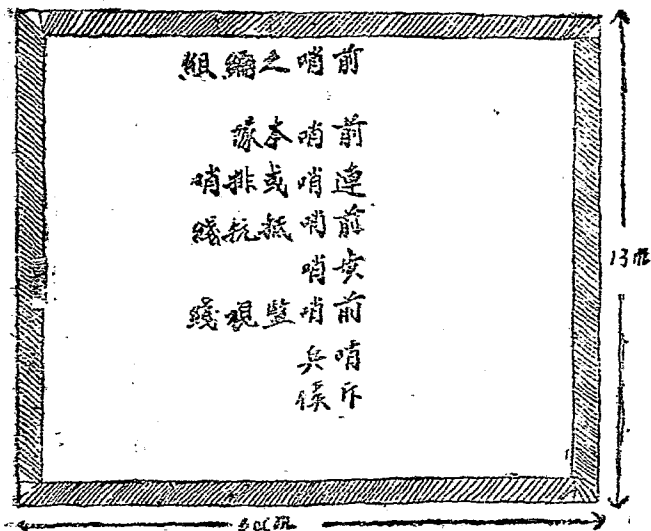 前哨之編組
前哨本隊
連哨或排哨
前哨抵抗綫
哨
前哨監視綫
哨兵
斥候
13